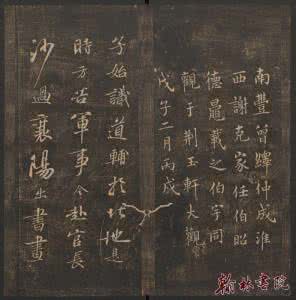 南豐曾繹仲成淮
西謝克家任伯昭
德晁載之伯宇同
觀于荆玉軒大觀
戊子二月丙戌
予始識道輔於此地是
時方苦軍事今赴官長
沙過襄陽出書畫
翰林書院